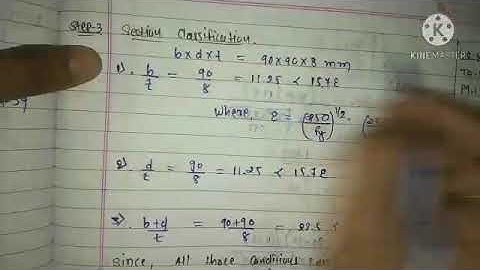 Step-3 Section Classification.
b×d×t = 90×90×8 mm
1). b/t = 90/8 = 11.25 < 15.7ε
where, ε = (250/fy)^1/2.
2). d/t = 90/8 = 11.25 < 15.7ε
3). b+d/t = 90+90/8 = 22.5
Since, All three conditions
KINEMASTER